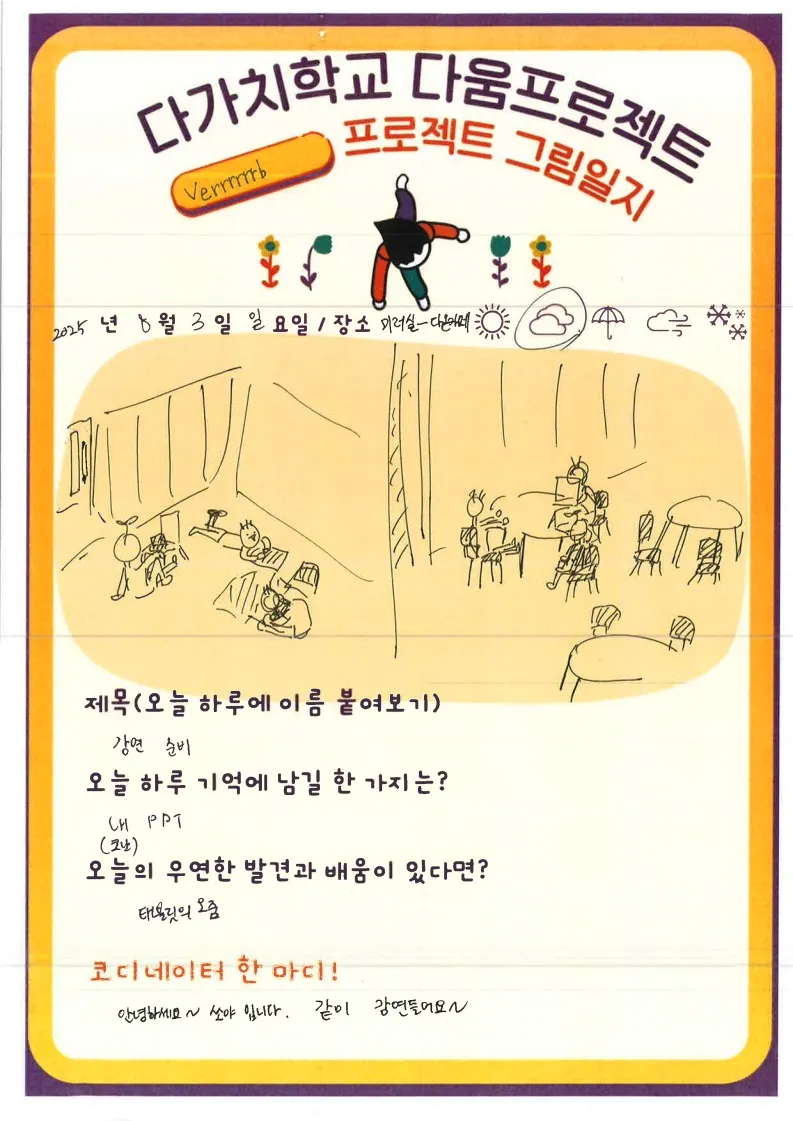 다가치학교 다움프로젝트
프로젝트 그림일지
Verrrrrrb
2025 년 8 월 3 일 일 요일 / 장소
제목(오늘 하루에 이름 붙여보기)
강연 준비
오늘 하루 기억에 남길 한 가지는?
내 PPT
오늘의 우연한 발견과 배움이 있다면?
코디네이터 한 마디!
안녕하세요~ 쏘야 입니다. 같이 강연들어요~